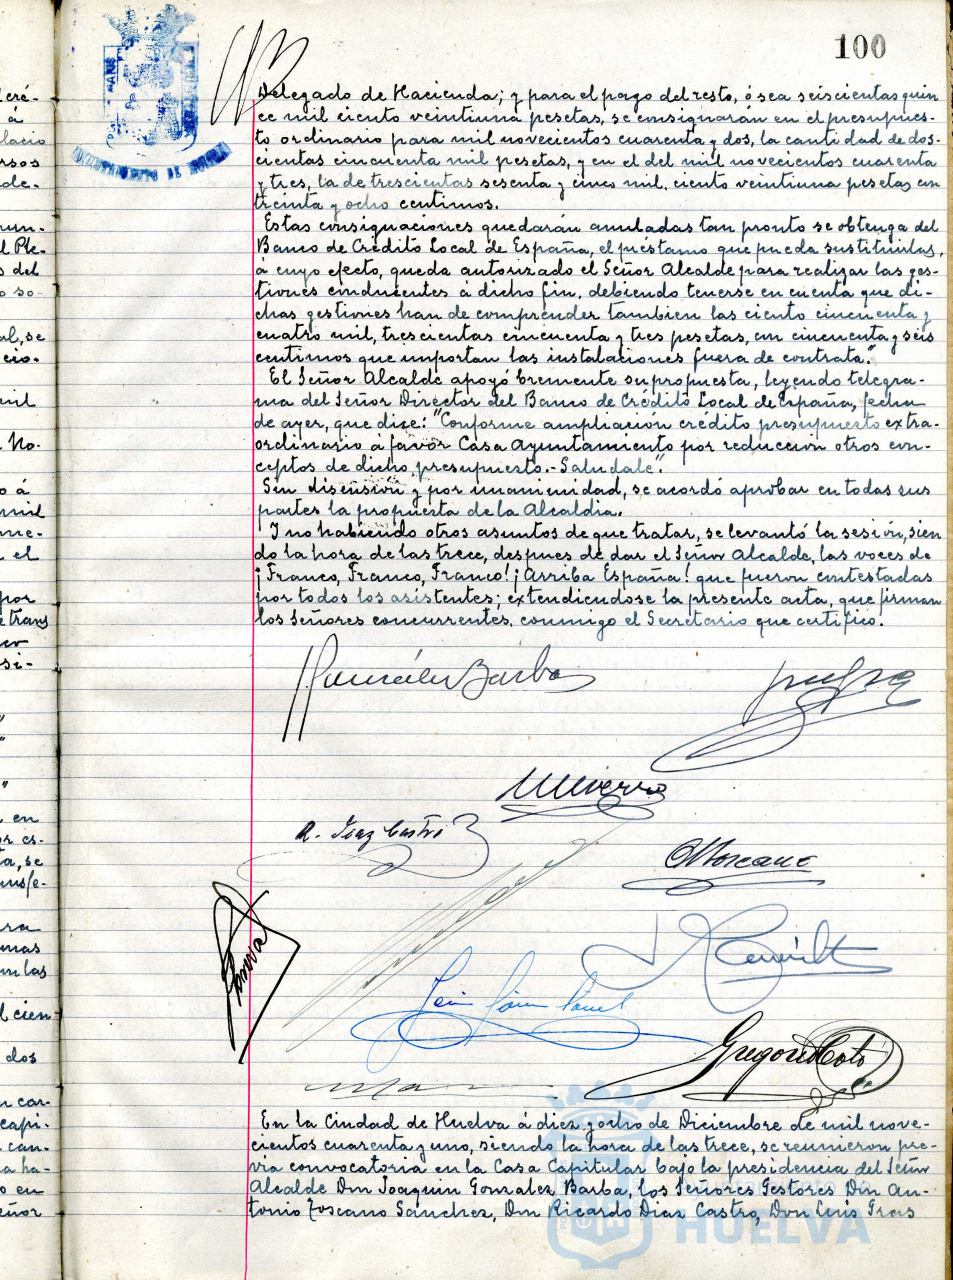 100
Delegado de Hacienda; y para el pago del resto, ó sea seiscientas quin
ce mil ciento veintiuna pesetas, se consignarán en el presupues-
to ordinario para mil novecientos cuarenta y dos, la cantidad de dos-
cientas cincuenta mil pesetas, y en el del mil novecientos cuarenta
y tres, la de trescientas sesenta y cinco mil, ciento veintiuna pesetas con
treinta y ocho centimos.
Estas consignaciones quedarán anuladas tan pronto se obtenga del
Banco de Crédito Local de España, el préstamo que pueda sustituirlas,
á cuyo efecto, queda autorizado el Señor Alcalde para realizar las ges-
tiones conducentes á dicho fin, debiendo tenerse en cuenta que di-
chas gestiones han de comprender tambien las ciento cincuenta y
cuatro mil, trescientas cincuenta y tres pesetas, con cincuenta y seis
centimos que importan las instalaciones fuera de contrata."
El Señor Alcalde apoyó bremente su propuesta, leyendo telegra-
ma del Señor Director del Banco de Crédito Local de España, fecha
de ayer, que dice: "Conforme ampliación crédito presupuesto extra-
ordinario á favor Casa Ayuntamiento por reducción otros con-
ceptos de dicho presupuesto.- Saludale".
Sin discusión y por unanimidad, se acordó aprobar en todas sus
partes la propuesta de la Alcaldia.
Y no habiendo otros asuntos de que tratar, se levantó la sesión, sien
do la hora de las trece, despues de dar el Señor Alcalde, las voces de
¡Franco, Franco, Franco! ¡Arriba España! que fueron contestadas
por todos los asistentes; extendiendose la presente acta, que firman
los Señores concurrentes, conmigo el Secretario que certifico.
González Barba
R. Diaz Castro
A Toscano
Gregorio Coto
En la Ciudad de Huelva á diez y ocho de Diciembre de mil nove-
cientos cuarenta y uno, siendo la hora de las trece, se reunieron pre-
via convocatoria en la Casa Capitular bajo la presidencia del Señor
Alcalde Don Joaquin Gonzalez Barba, los Señores Gestores Don An-
tonio Toscano Sánchez, Don Ricardo Diaz Castro, Don Luis Gras
HUELVA